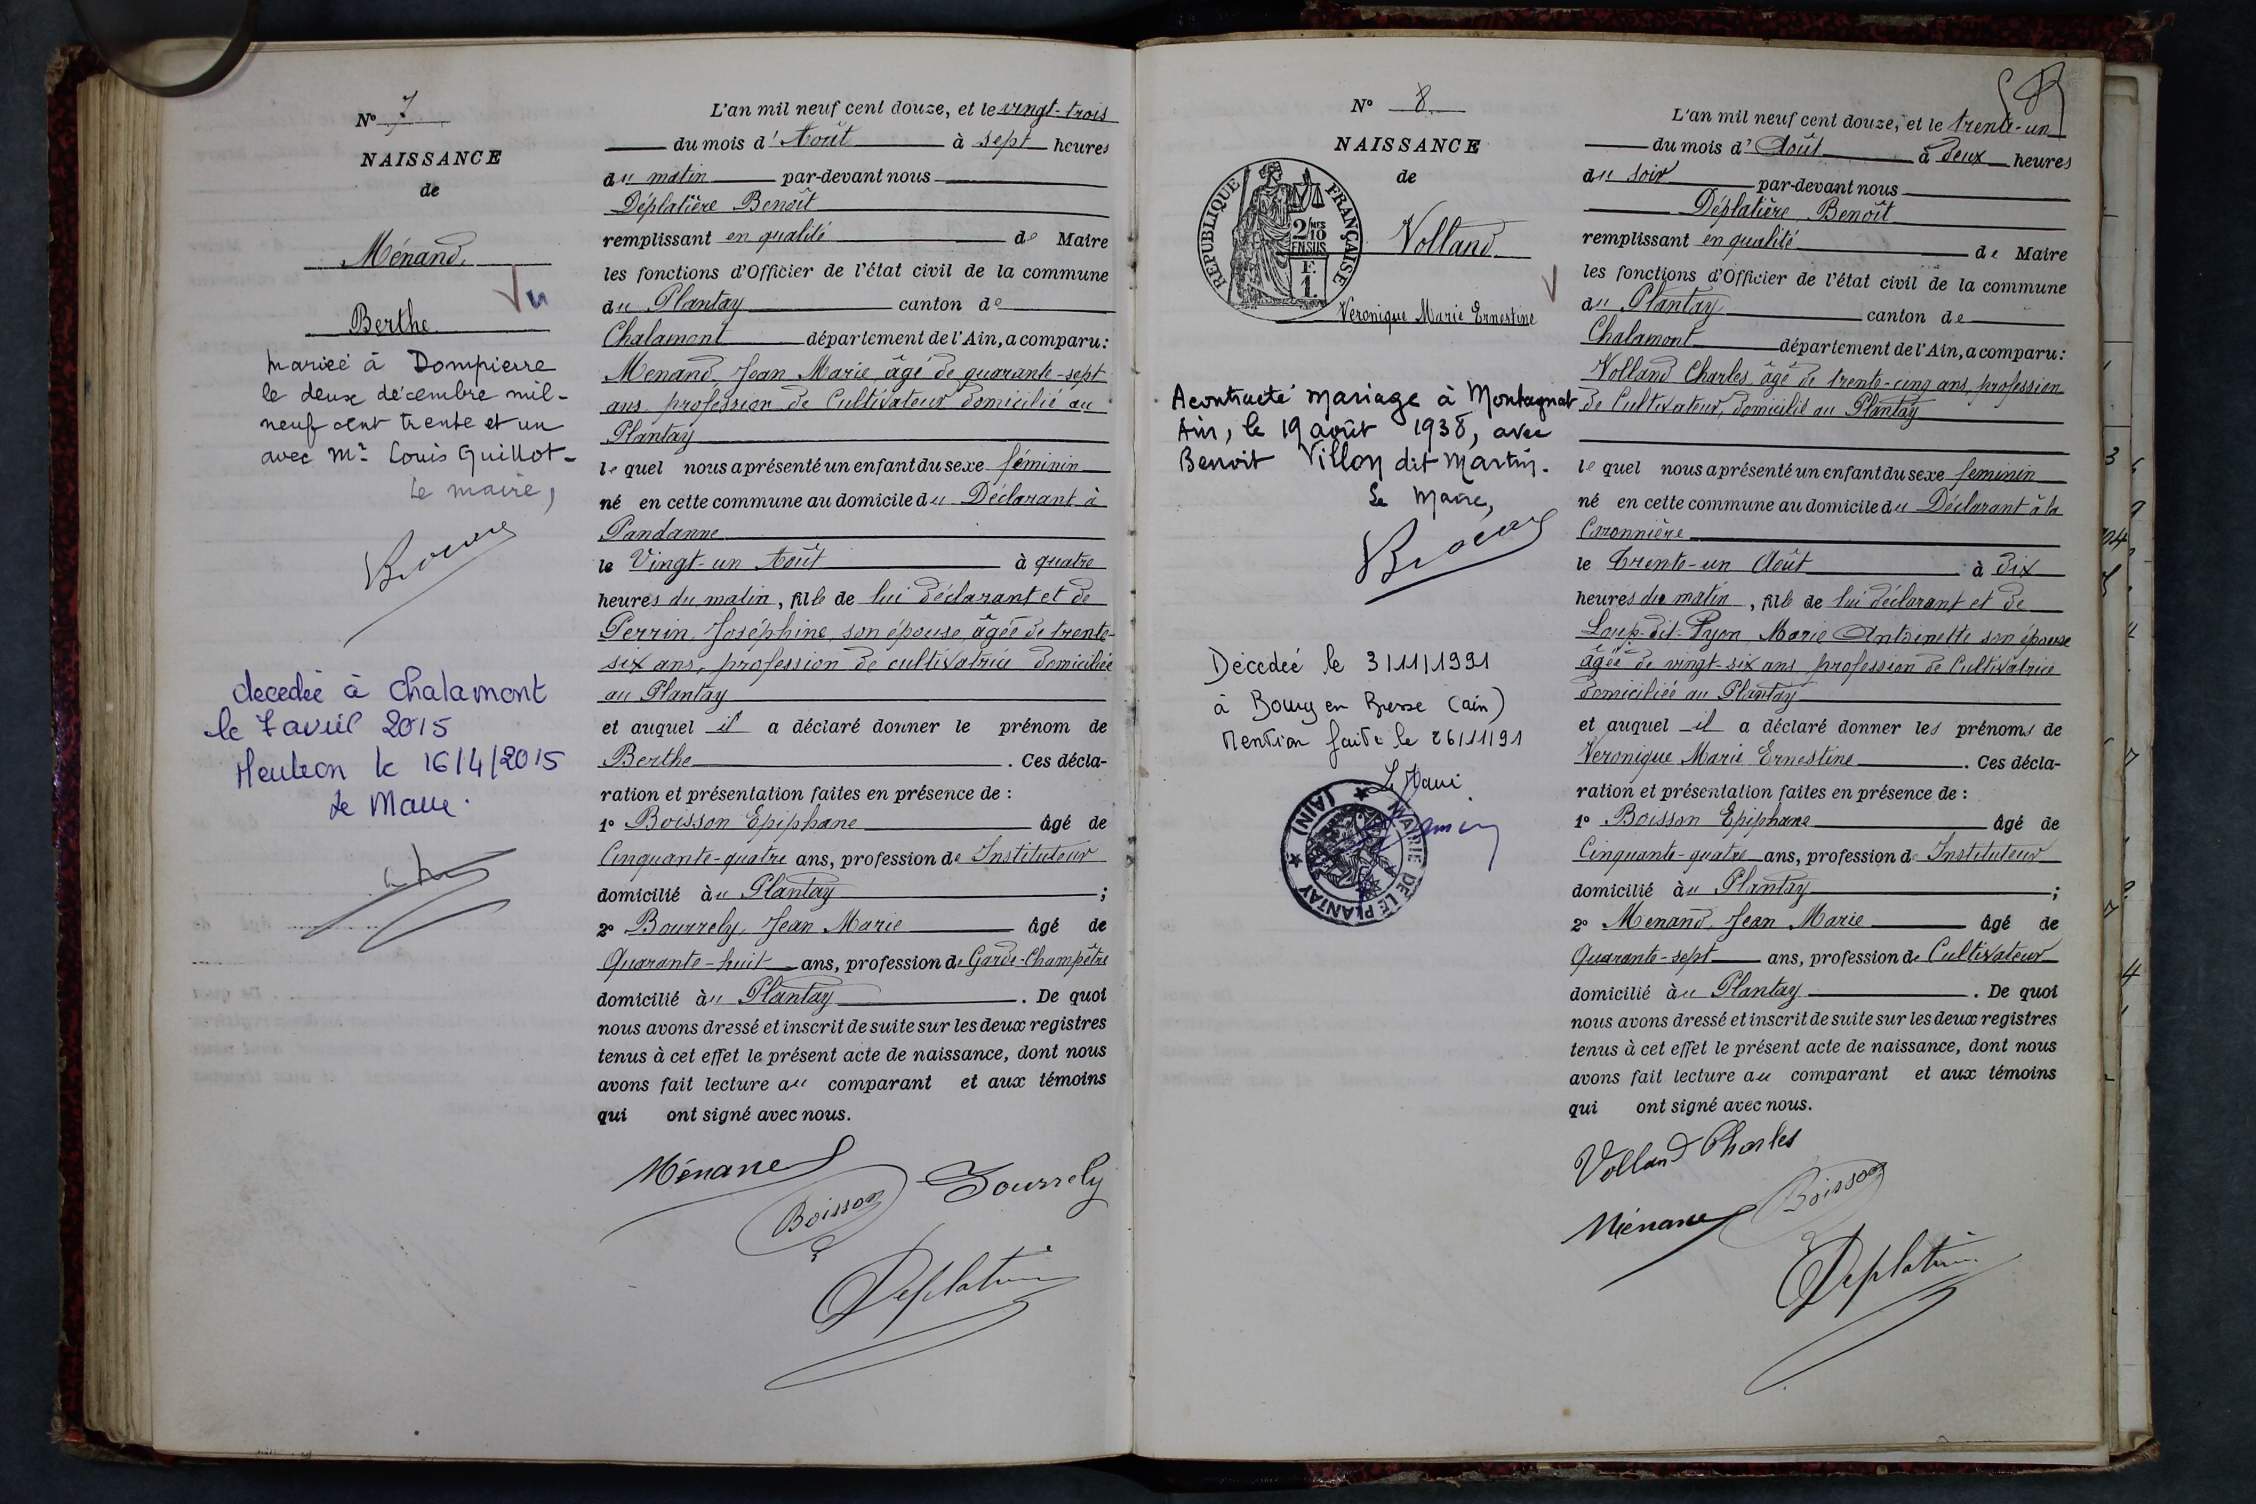 N° 7
NAISSANCE
de
Ménand
Vu
Berthe
mariée à Dompierre
le deux décembre mil-
neuf cent trente et un
avec Mr Louis Guillot-
Le maire,
décédée à Chalamont
le 7 avril 2015
Mention le 16/4/2015
Le Maire.
L'an mil neuf cent douze, et le vingt-trois
du mois d'Août à sept heures
du matin par-devant nous
Déplatière Benoît
remplissant en qualité de Maire
les fonctions d'Officier de l'état civil de la commune
du Plantay canton de
Chalamont département de l'Ain, a comparu:
Menand Jean Marie âgé de quarante-sept
ans, profession de Cultivateur domicilié au
Plantay
lequel nous a présenté un enfant du sexe féminin
né en cette commune au domicile du Déclarant à
Pandanne
le Vingt-un Août à quatre
heures du matin, fille de lui déclarant et de
Perrin Joséphine, son épouse, âgée de trente-
six ans, profession de cultivatrice domiciliée
au Plantay
et auquel il a déclaré donner le prénom de
Berthe. Ces décla-
ration et présentation faites en présence de :
1° Boisson Epiphane âgé de
Cinquante-quatre ans, profession de Instituteur
domicilié au Plantay ;
2° Bourrely Jean Marie âgé de
Quarante-huit ans, profession de Garde-Champêtre
domicilié au Plantay. De quoi
nous avons dressé et inscrit de suite sur les deux registres
tenus à cet effet le présent acte de naissance, dont nous
avons fait lecture au comparant et aux témoins
qui ont signé avec nous.
Ménand
Boisson
Bourrely
Déplatière
N° 8
NAISSANCE
de
RÉPUBLIQUE FRANÇAISE
2/10 EN SUS
F. 1.
Volland
Véronique Marie Ernestine
A contracté mariage à Montagnat
Ain, le 19 août 1938, avec
Benoit Villon dit Martin.
Le Maire,
Décédée le 3/11/1991
à Bourg en Bresse (Ain)
Mention faite le 26/11/91
Le Maire
MAIRIE DE LE PLANTAY (AIN)
L'an mil neuf cent douze, et le trente-un
du mois d'Août à deux heures
du soir par-devant nous
Déplatière Benoît
remplissant en qualité de Maire
les fonctions d'Officier de l'état civil de la commune
du Plantay canton de
Chalamont département de l'Ain, a comparu:
Volland Charles âgé de trente-cinq ans, profession
de Cultivateur, domicilié au Plantay
lequel nous a présenté un enfant du sexe feminin
né en cette commune au domicile du Déclarant à la
Caronnière
le Trente-un Août à dix
heures du matin, fille de lui déclarant et de
Loup-dit-Pyon Marie Antoinette son épouse
âgée de vingt-six ans profession de Cultivatrice
domiciliée au Plantay
et auquel il a déclaré donner les prénoms de
Veronique Marie Ernestine. Ces décla-
ration et présentation faites en présence de :
1° Boisson Epiphane âgé de
Cinquante-quatre ans, profession d'Instituteur
domicilié au Plantay ;
2° Menand Jean Marie âgé de
Quarante-sept ans, profession de Cultivateur
domicilié au Plantay. De quoi
nous avons dressé et inscrit de suite sur les deux registres
tenus à cet effet le présent acte de naissance, dont nous
avons fait lecture au comparant et aux témoins
qui ont signé avec nous.
Volland Charles
Ménand
Boisson
Déplatière